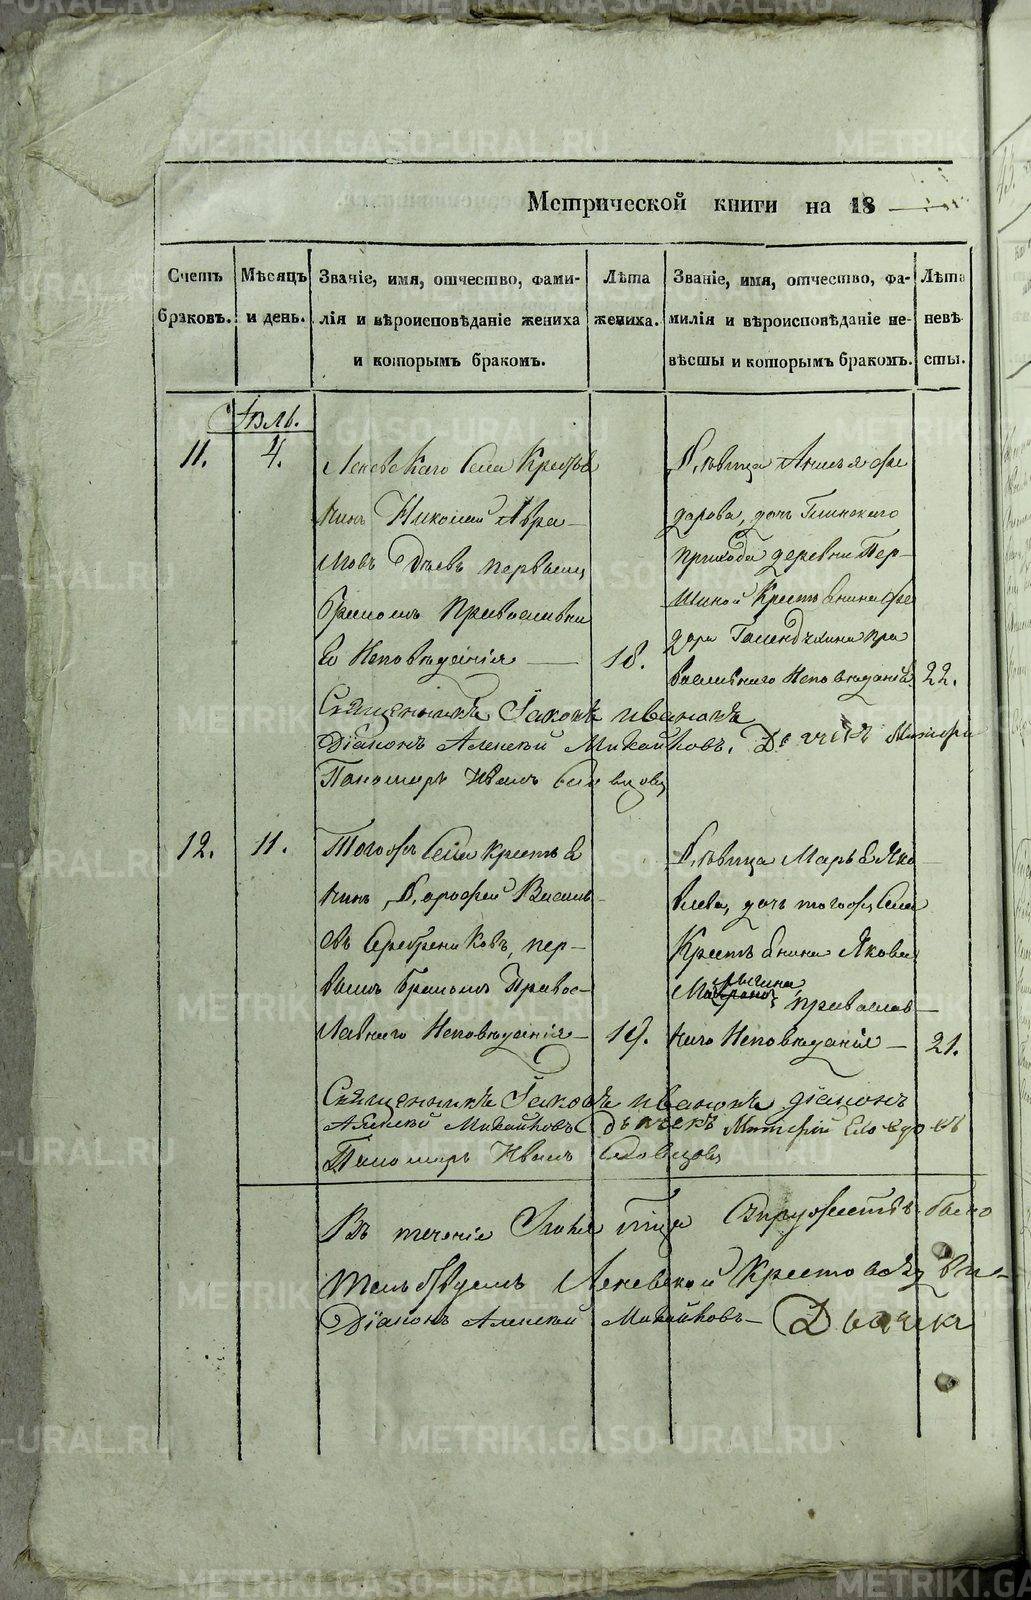 Метрической книги на 18
Счетъ браковъ.
Мѣсяцъ и день.
Званіе, имя, отчество, фами-
лія и вѣроисповѣданіе жениха
и которымъ бракомъ.
Лѣта жениха.
Званіе, имя, отчество, фа-
милія и вѣроисповѣданіе не-
вѣсты и которымъ бракомъ.
Лѣта невѣ-
сты.
11.
4.
Леневскаго Села Крестья
нинъ Николай Авра-
мовъ первымъ
бракомъ Православна
го Исповѣданія
18.
Дѣвица Анисья Фе
дорова, дочь Глинскаго
прихода деревни Пер-
шиной Крестьянина Фе
дора пра
вославнаго Исповѣданія
22.
Священникъ Іаковъ Ивановъ
Діаконъ Алексѣй Михайловъ. Дьячекъ
Пономарь Иванъ
12.
11.
Тогожъ Села крестья
нинъ Дорофей Василь-
евъ Серебрениковъ, пер-
вымъ бракомъ Правос-
лавнаго Исповѣданія
19.
Дѣвица Марья Яко
влева, дочь тогожъ Села
Крестьянина Якова
православ-
наго Исповѣданія
21.
Священникъ Іаковъ Ивановъ діаконъ
Алексѣй Михайловъ Дьячекъ
Пономарь Иванъ
Въ теченіе
Леневской Крестово
Діаконъ Алексѣй Михайловъ Дьячекъ
METRIKI.GASO-URAL.RU